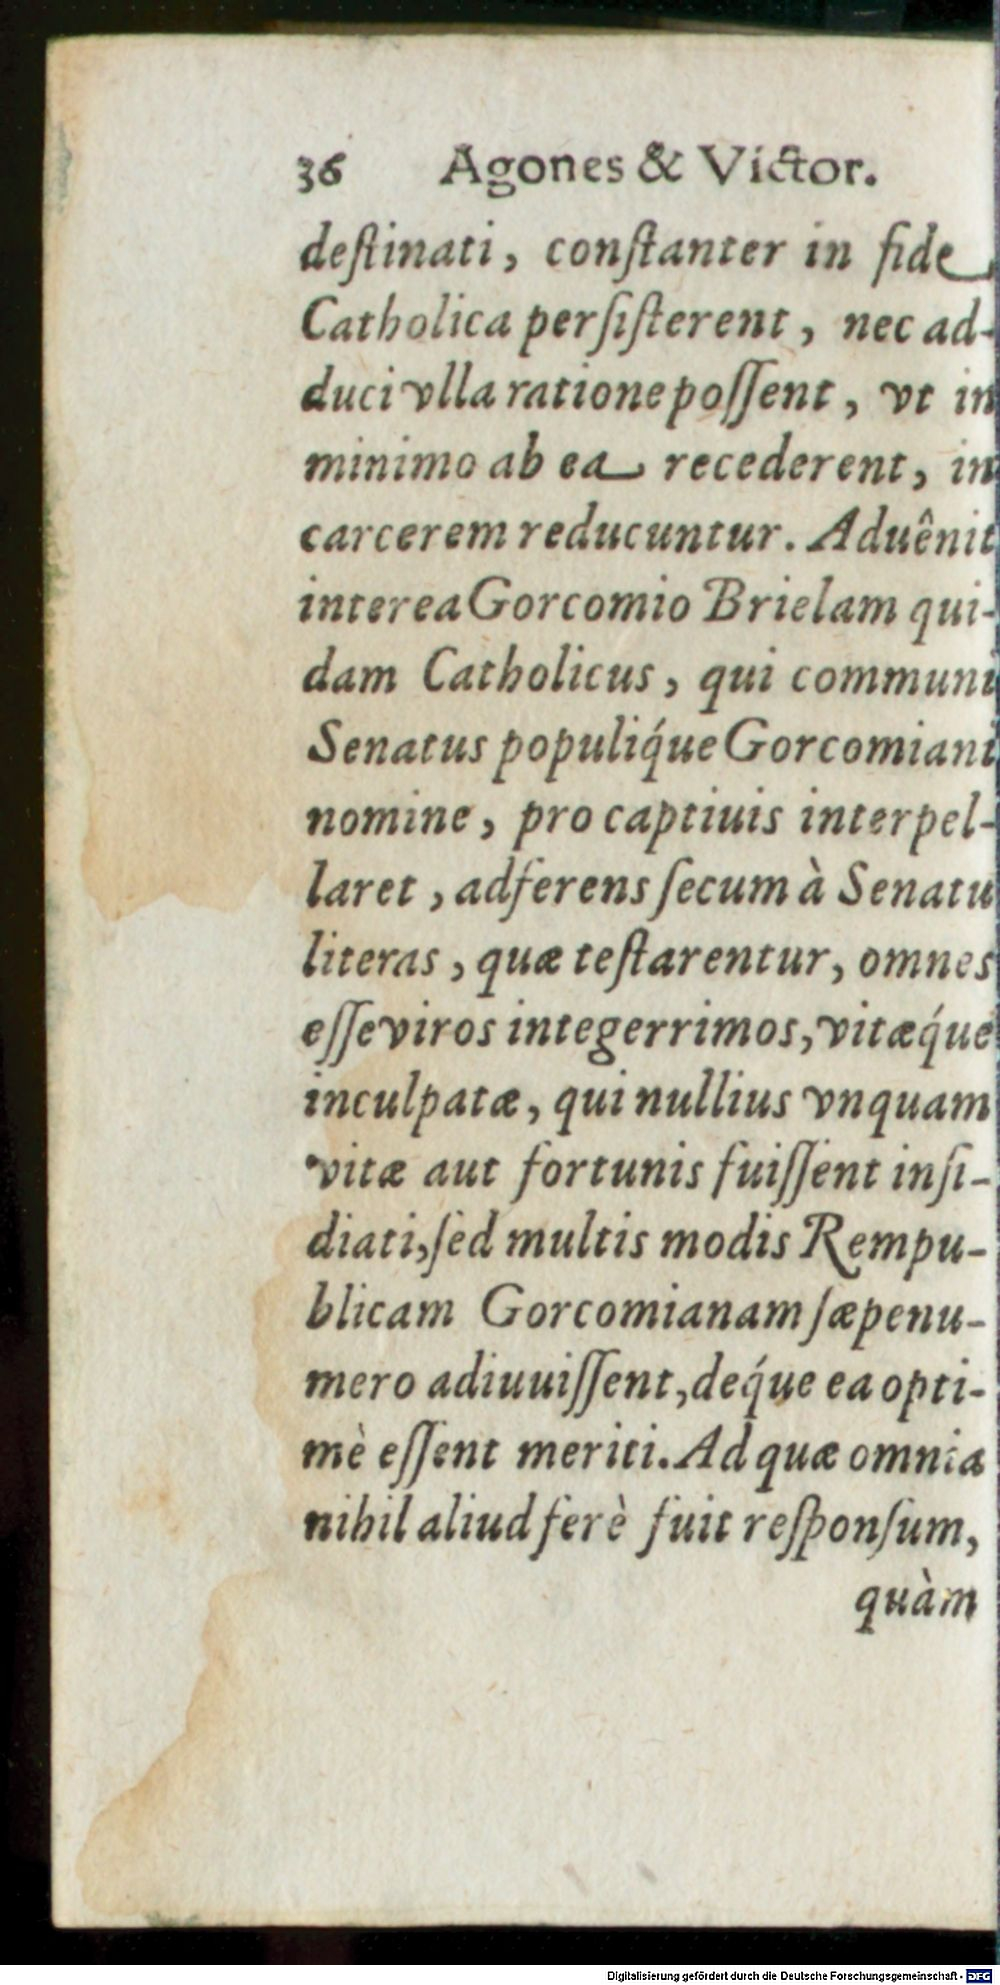 36 Agones & Victor.
deſtinati, conſtanter in fide
Catholica perſiſterent, nec ad-
duci vlla ratione poſſent, vt in
minimo ab ea recederent, in
carcerem reducuntur. Aduênit
interea Gorcomio Brielam qui-
dam Catholicus, qui communi
Senatus populiq́ue Gorcomiani
nomine, pro captiuis interpel-
laret, adferens ſecum à Senatu
literas, quæ teſtarentur, omnes
eſſe viros integerrimos, vitæq́ue
inculpatæ, qui nullius vnquam
vitæ aut fortunis fuiſſent inſi-
diati, ſed multis modis Rempu-
blicam Gorcomianam ſæpenu-
mero adiuuiſſent, deq́ue ea opti-
mè eſſent meriti. Ad quæ omnia
nihil aliud ferè fuit reſponſum,
quàm
Digitalisierung gefördert durch die Deutsche Forschungsgemeinschaft - DFG